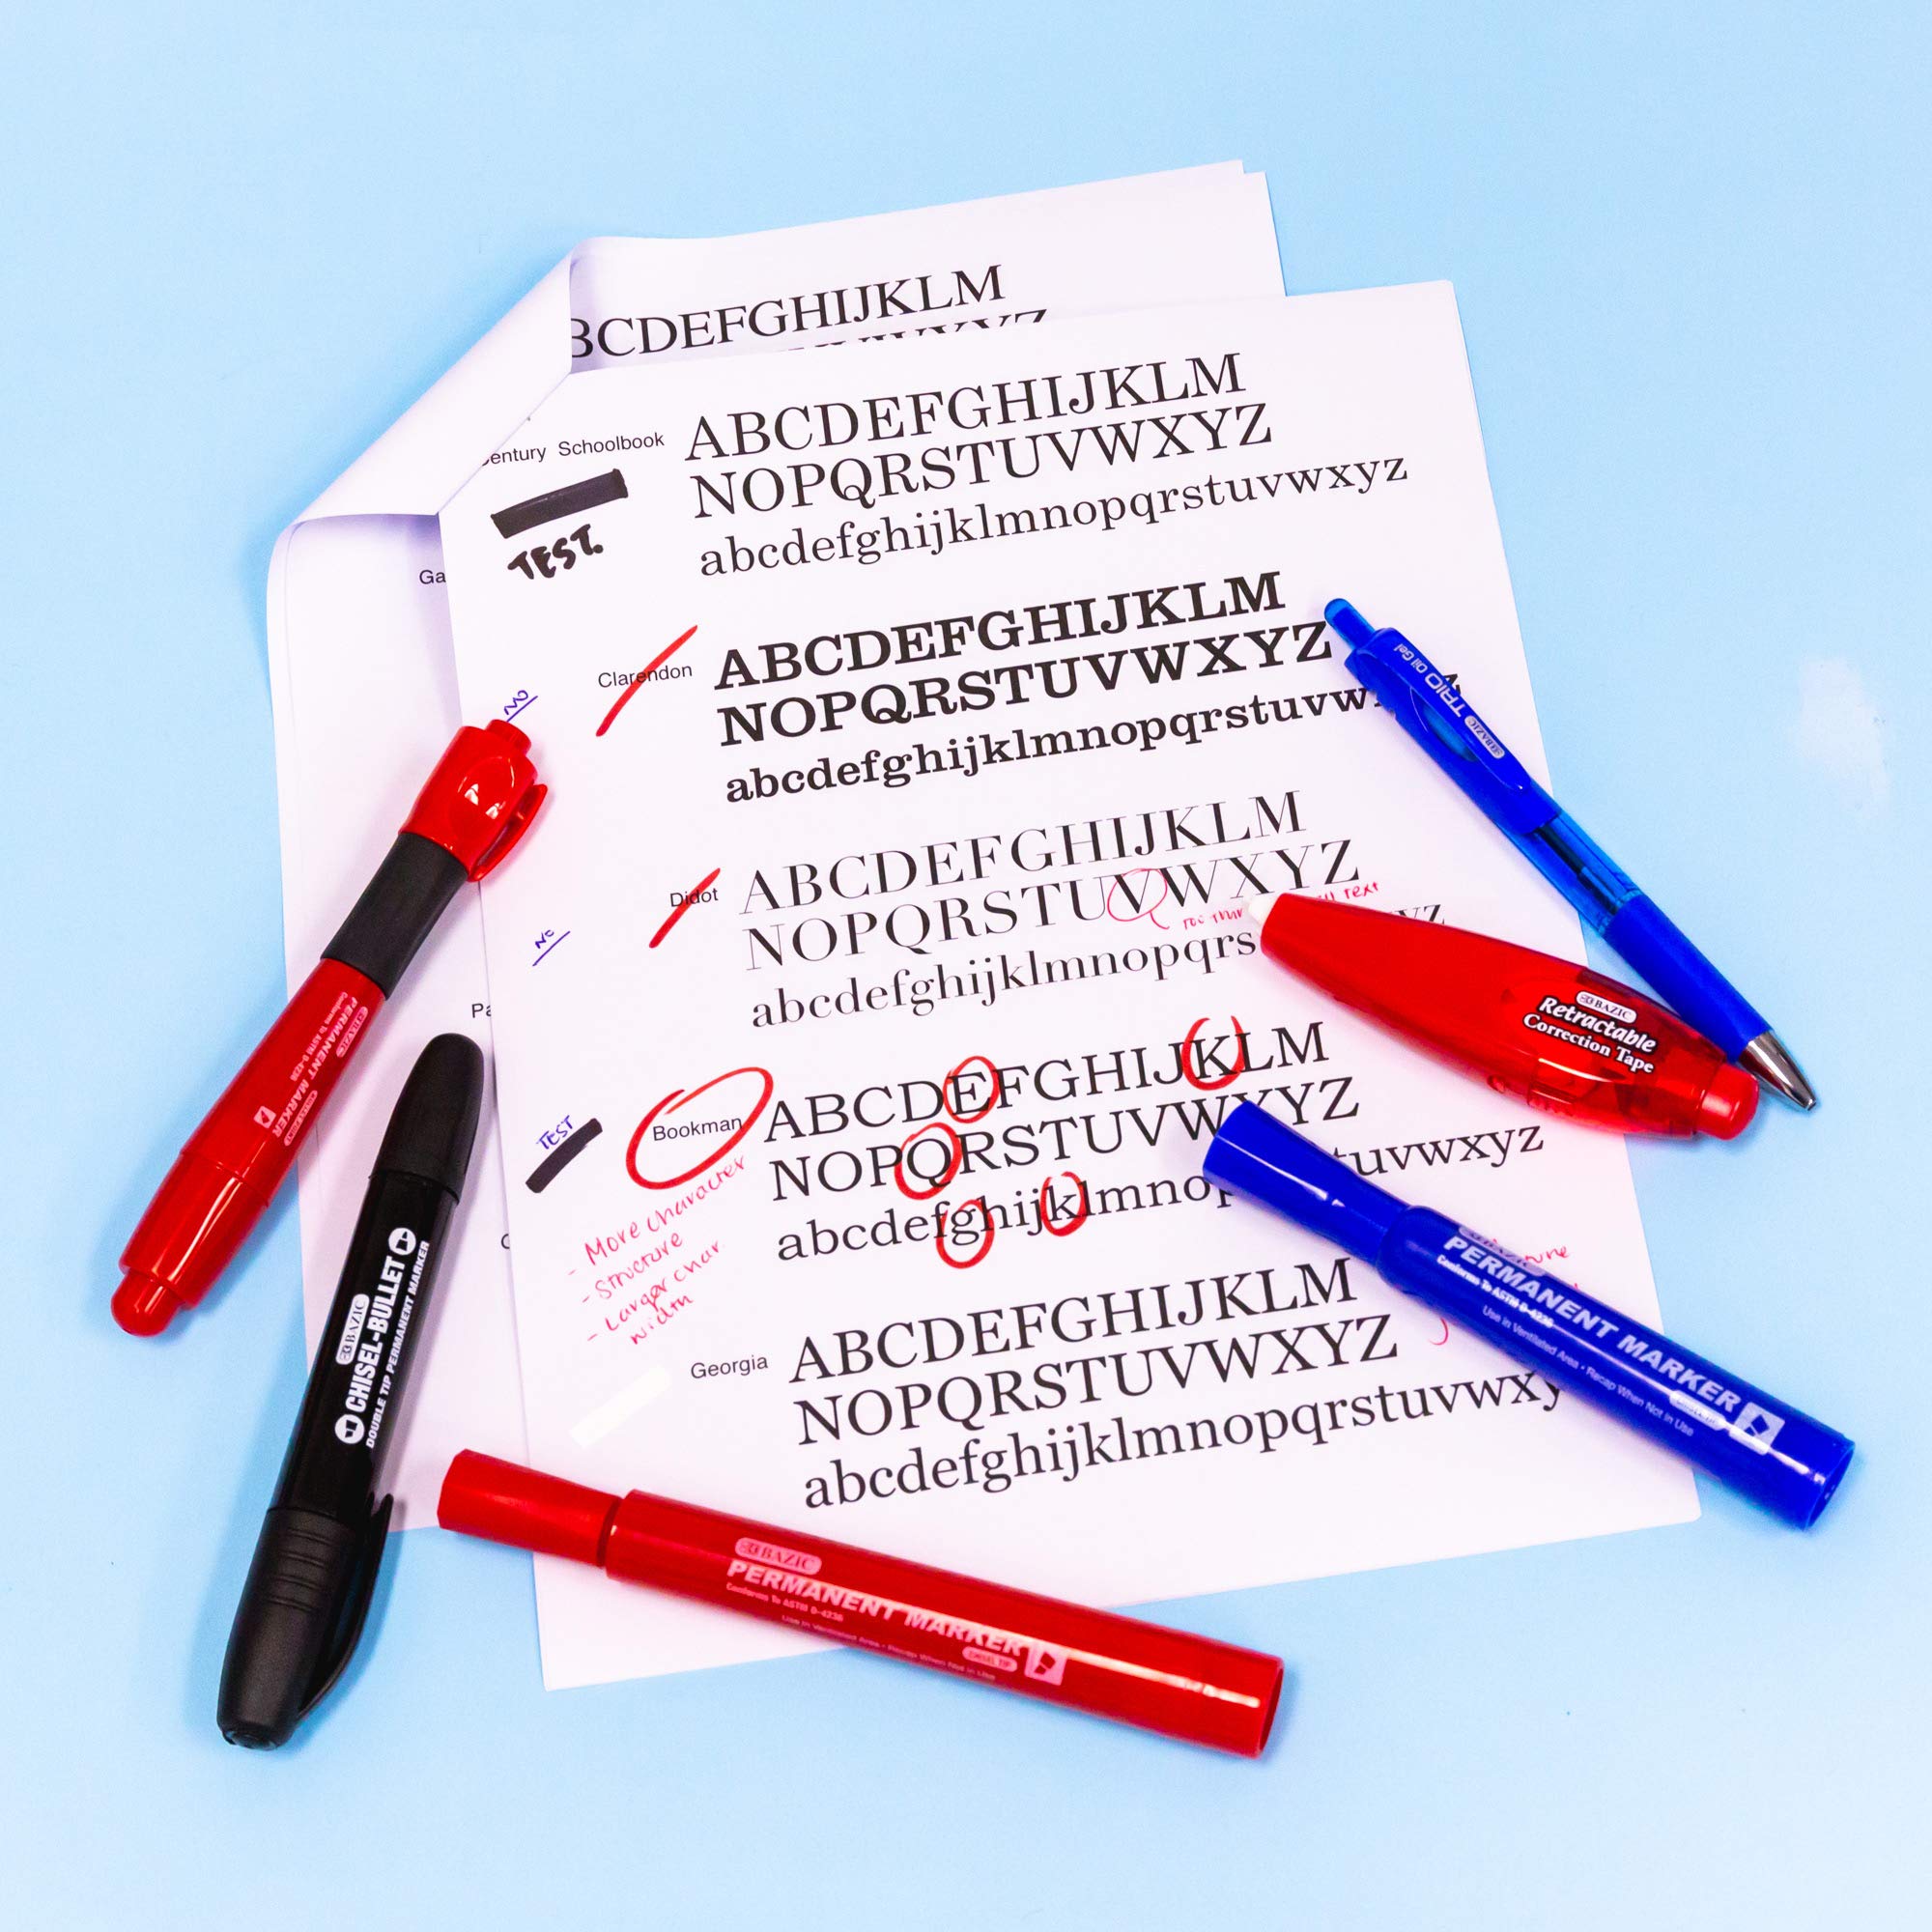 BCDEFGHIJKLM
Century Schoolbook
ABCDEFGHIJKLM
NOPQRSTUVWXYZ
abcdefghijklmnopqrstuvwxyz
TEST.
Ga
Clarendon
ABCDEFGHIJKLM
NOPQRSTUVWXYZ
abcdefghijklmnopqrstuvw
NO
Didot
ABCDEFGHIJKLM
NOPQRSTUVWXYZ
abcdefghijklmnopqrs
yz
text
NO
Pa
Bookman
ABCDEFGHIJKLM
NOPQRSTUVWXYZ
abcdefghijklmnop
tuvwxyz
TEST
- More character
- Structure
- Larger char.
width
Georgia
ABCDEFGHIJKLM
NOPQRSTUVWXYZ
abcdefghijklmnopqrstuvwxy
BAZIC
TRIO Oil Gel
BAZIC
Retractable
Correction Tape
BAZIC
PERMANENT MARKER
Conforms To ASTM D-4236
Use in Ventilated Area • Recap When Not in Use
BAZIC
PERMANENT MARKER
Conforms To ASTM D-4236
BAZIC
CHISEL-BULLET
DOUBLE TIP PERMANENT MARKER
BAZIC
PERMANENT MARKER
Conforms To ASTM D-4236
Use in Ventilated Area • Recap When Not in Use
CHISEL TIP